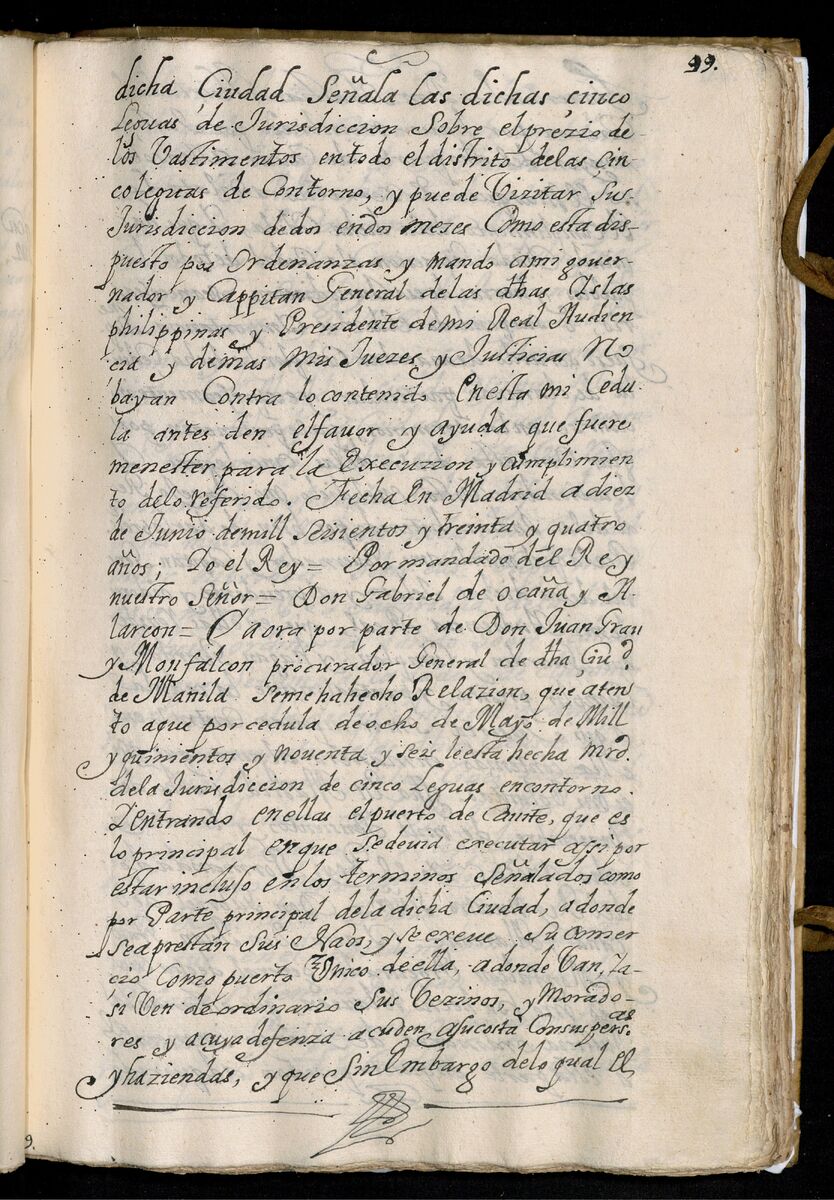 99.
dicha Ciudad Señala las dichas cinco
Leguas de Jurisdiccion Sobre el prezio de
los Vastimentos en todo el distrito de las cin-
co leguas de Contorno, y puede Vizitar Sus
Jurisdiccion de dos en dos mezes Como esta dis-
puesto por Ordenanzas y mando ami gover-
nador y Cappitan General de las dhas Yslas
philippinas y Presidente de mi Real Audien
cia y demas Mis Juezes y Justicias No
bayan Contra lo contenido En esta mi Cedu
la antes den el favor y ayuda que fuere
menester para la Execuzion y cumplimien
to de lo referido. Fecha En Madrid a diez
de Junio de mill seisientos y treinta y quatro
años; Yo el Rey = Por mandado del Rey
nuestro Señor = Don Gabriel de ocaña y A-
larcon = Y aora por parte de Don Juan Grau
y Monfalcon procurador General de dha Ciud.
de Manila se me ha hecho Relazion, que aten
to aque por cedula de ocho de Mayo de Mill
y quinientos y noventa y seis le esta hecha mrd.
de la Jurisdiccion de cinco Leguas en contorno.
Y entrando en ellas el puerto de Cavite, que es
lo principal en que se devia executar assi por
estar incluso en los terminos Señalados como
por Parte principal de la dicha Ciudad, a donde
se aprestan sus Naos, y se exeue su comer
cio Como puerto Vnico de ella, a donde Van, Ya-
si Ven de ordinario Sus Vezinos, y Morado-
res y a cuya defenza acuden asu costa Con sus persas.
y haziendas, y que Sin Embargo de lo qual El
9.